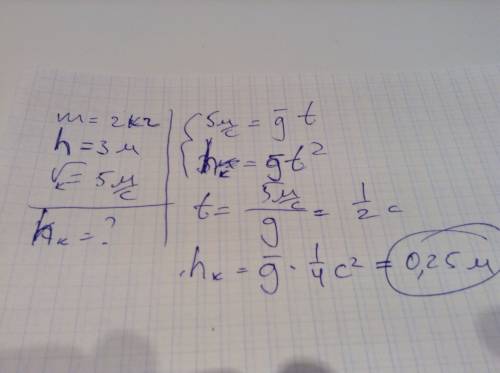 m = 2кг
h = 3 м
v_к = 5 м/с
h_к = ?
5 м/с = g t
h_к = g t²
t = 5 м/с / g = 1/2 с
h_к = g · 1/4 с² = 0,25 м